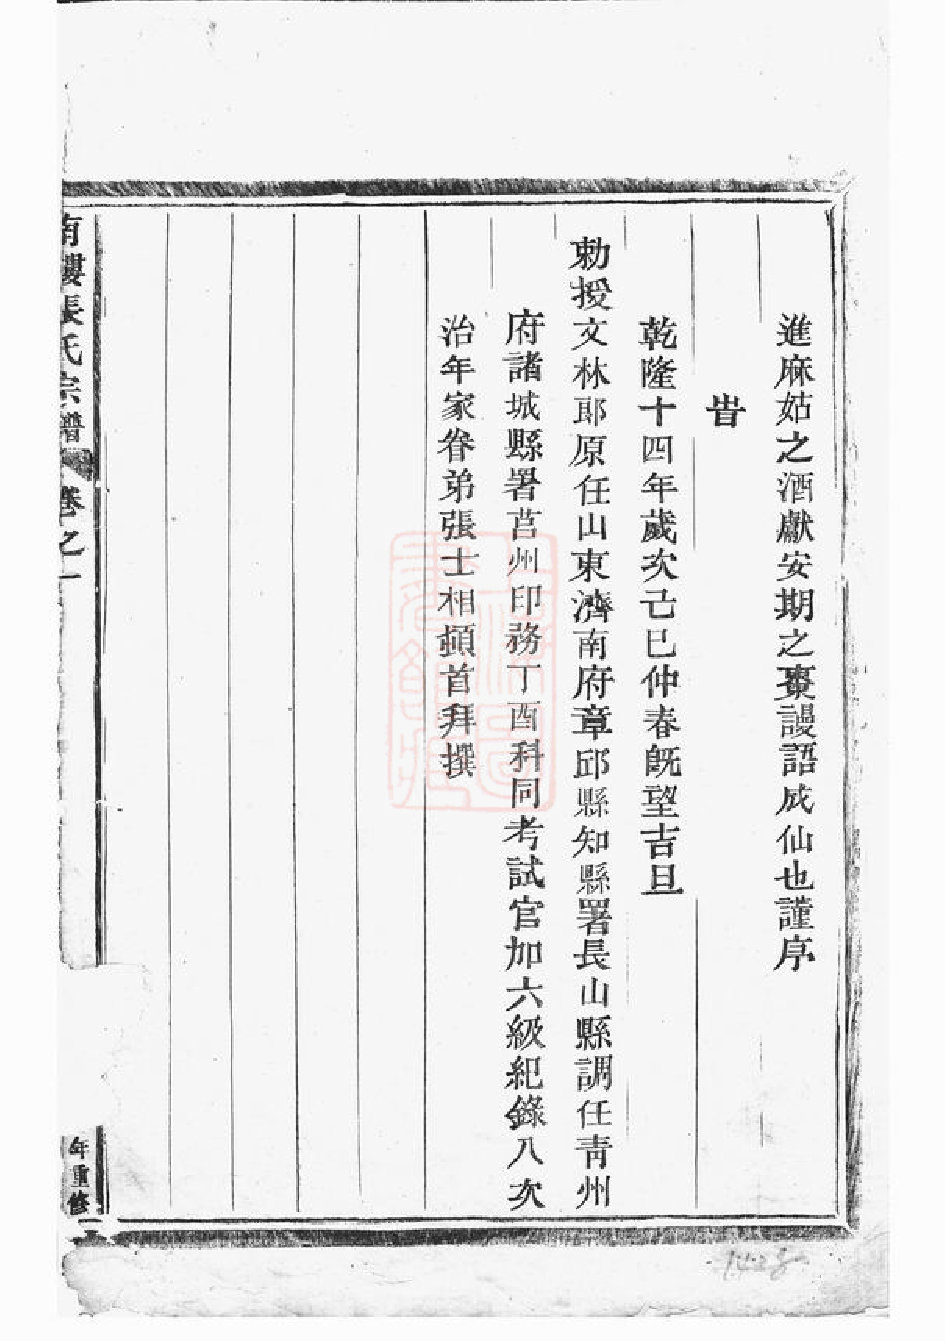 進麻姑之酒獻安期之棗謾語成仙也謹序
旹
乾隆十四年歲次己巳仲春既望吉旦
勅授文林郎原任山東濟南府章邱縣知縣署長山縣調任靑州
府諸城縣署莒州印務丁酉科同考試官加六級紀錄八次
治年家眷弟張士相頓首拜撰
南樓張氏宗譜
卷之一
年重修
1428